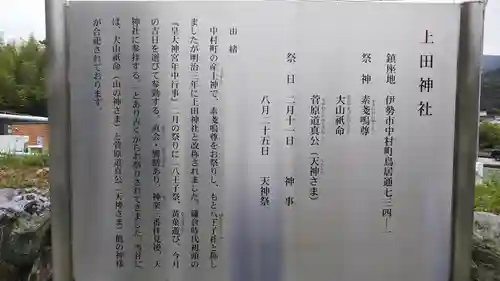 上田神社
鎮座地　伊勢市中村町鳥居通七三四ー一
祭神　素戔嗚尊
大山祇命
菅原道真公（天神さま）
祭日　二月十一日　神事
八月二十五日　天神祭
由緒
中村町の産土神で、素戔嗚尊をお祭りし、もと八王子社と称し
ましたが明治三年に上田神社と改称されました。鎌倉時代初頭の
『皇大神宮年中行事』二月の祭りに「八王子祭、黄衆遊び、今月
の吉日を選びて参勤する。直会・饗膳あり、神楽三番拝見後、天
神社に参拝する。」とあり古くからお祭りされてきました。当社に
は、大山祇命（山の神さま）と菅原道真公（天神さま）他の神様
が合祀されております。